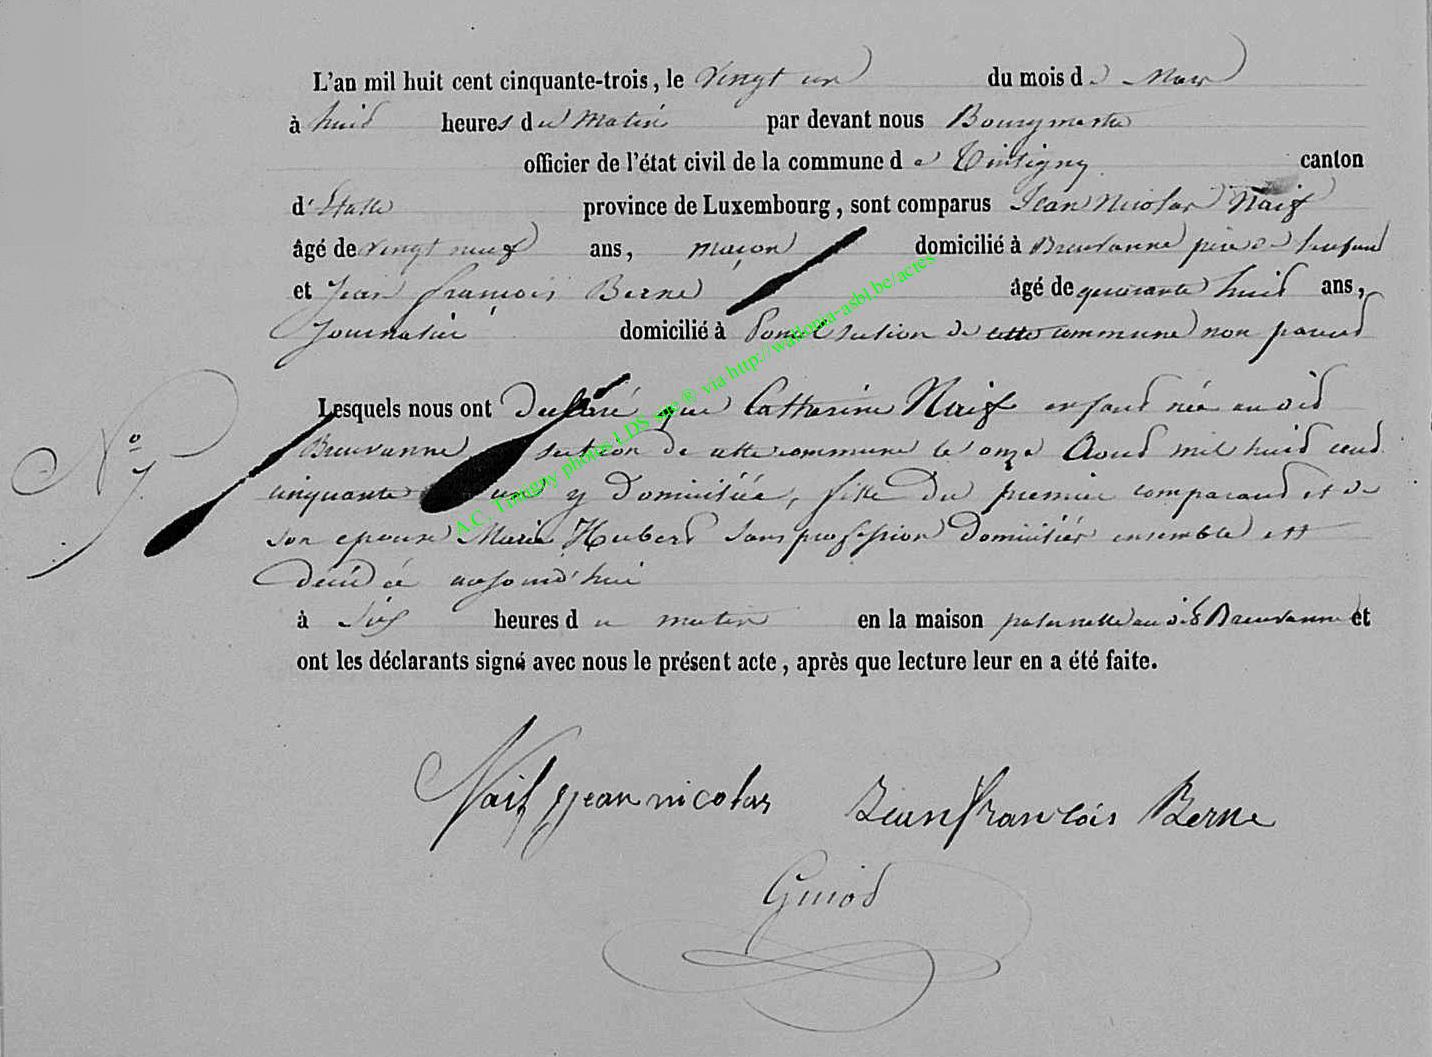 L'an mil huit cent cinquante-trois, le vingt un du mois de Mars
à huit heures du Matin par devant nous Bourgmestre
officier de l'état civil de la commune de Tintigny canton
d'Etalle province de Luxembourg, sont comparus Jean Nicolas Naif
âgé de vingt neuf ans, maçon domicilié à Breuvanne père de l'enfant
et Jean françois Berne âgé de quarante huit ans,
Journalier domicilié à section de cette commune non parent
Lesquels nous ont déclaré que Catherine Naif enfant née au dit
N° 7
Breuvanne section de cette commune le onze Aout mil huit cent
cinquante un y domiciliée, fille du premier comparant et de
son epouse Marie Hubert sans profession domiciliés ensemble est
décédée aujourd'hui
à six heures du matin en la maison paternelle au dit Breuvanne et
ont les déclarants signé avec nous le présent acte, après que lecture leur en a été faite.
Naif jean nicolas Jean françois Berne
Guiot
A.C. Tintigny photos LDS site ® via http://wallonia-asbl.be/actes